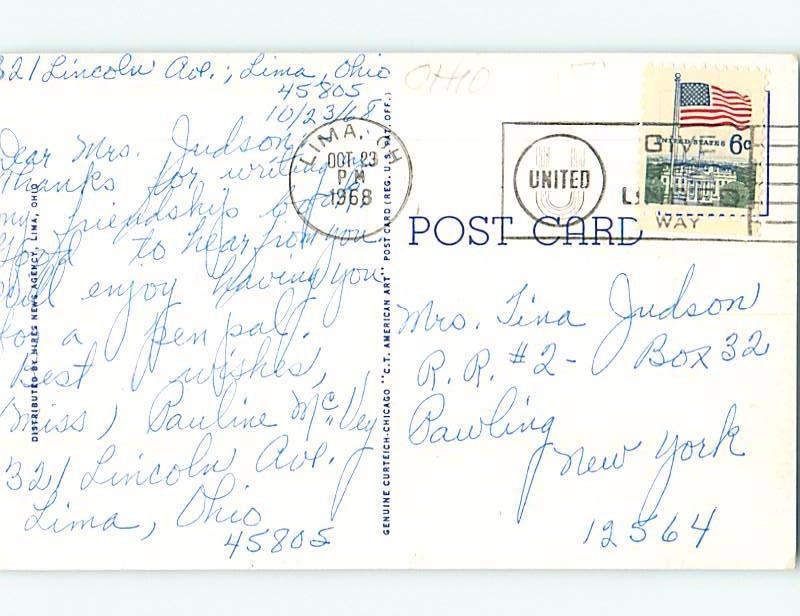 321 Lincoln Ave., Lima, Ohio
45805
10/23/68
Dear Mrs. Judson,
Thanks for writing
my friendship
Good to hear from you.
Will enjoy having you
for a pen pal.
Best wishes,
(Miss) Pauline McVey
321 Lincoln Ave.
Lima, Ohio
45805
DISTRIBUTED BY HIRES NEWS AGENCY, LIMA, OHIO
GENUINE CURTEICH-CHICAGO "C.T. AMERICAN ART" POST CARD (REG. U.S. PAT. OFF.)
OHIO
LIMA, OH
OCT 23
PM
1968
UNITED
GIVE
WAY
UNITED STATES 6c
POST CARD
Mrs. Tina Judson
R.R. #2 - Box 32
Pawling
New York
12564